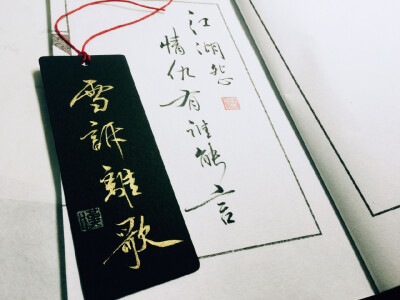 江湖怨
情仇有誰能言
雪訴離歌